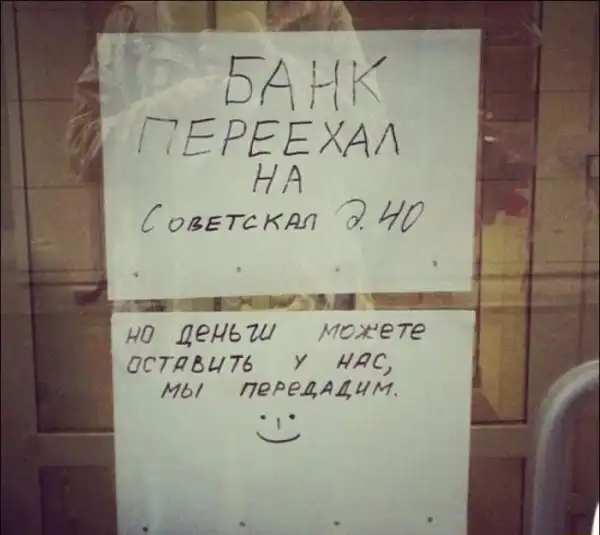 БАНК
ПЕРЕЕХАЛ
НА
Советская д. 40
но деньги можете
оставить у нас,
мы передадим.